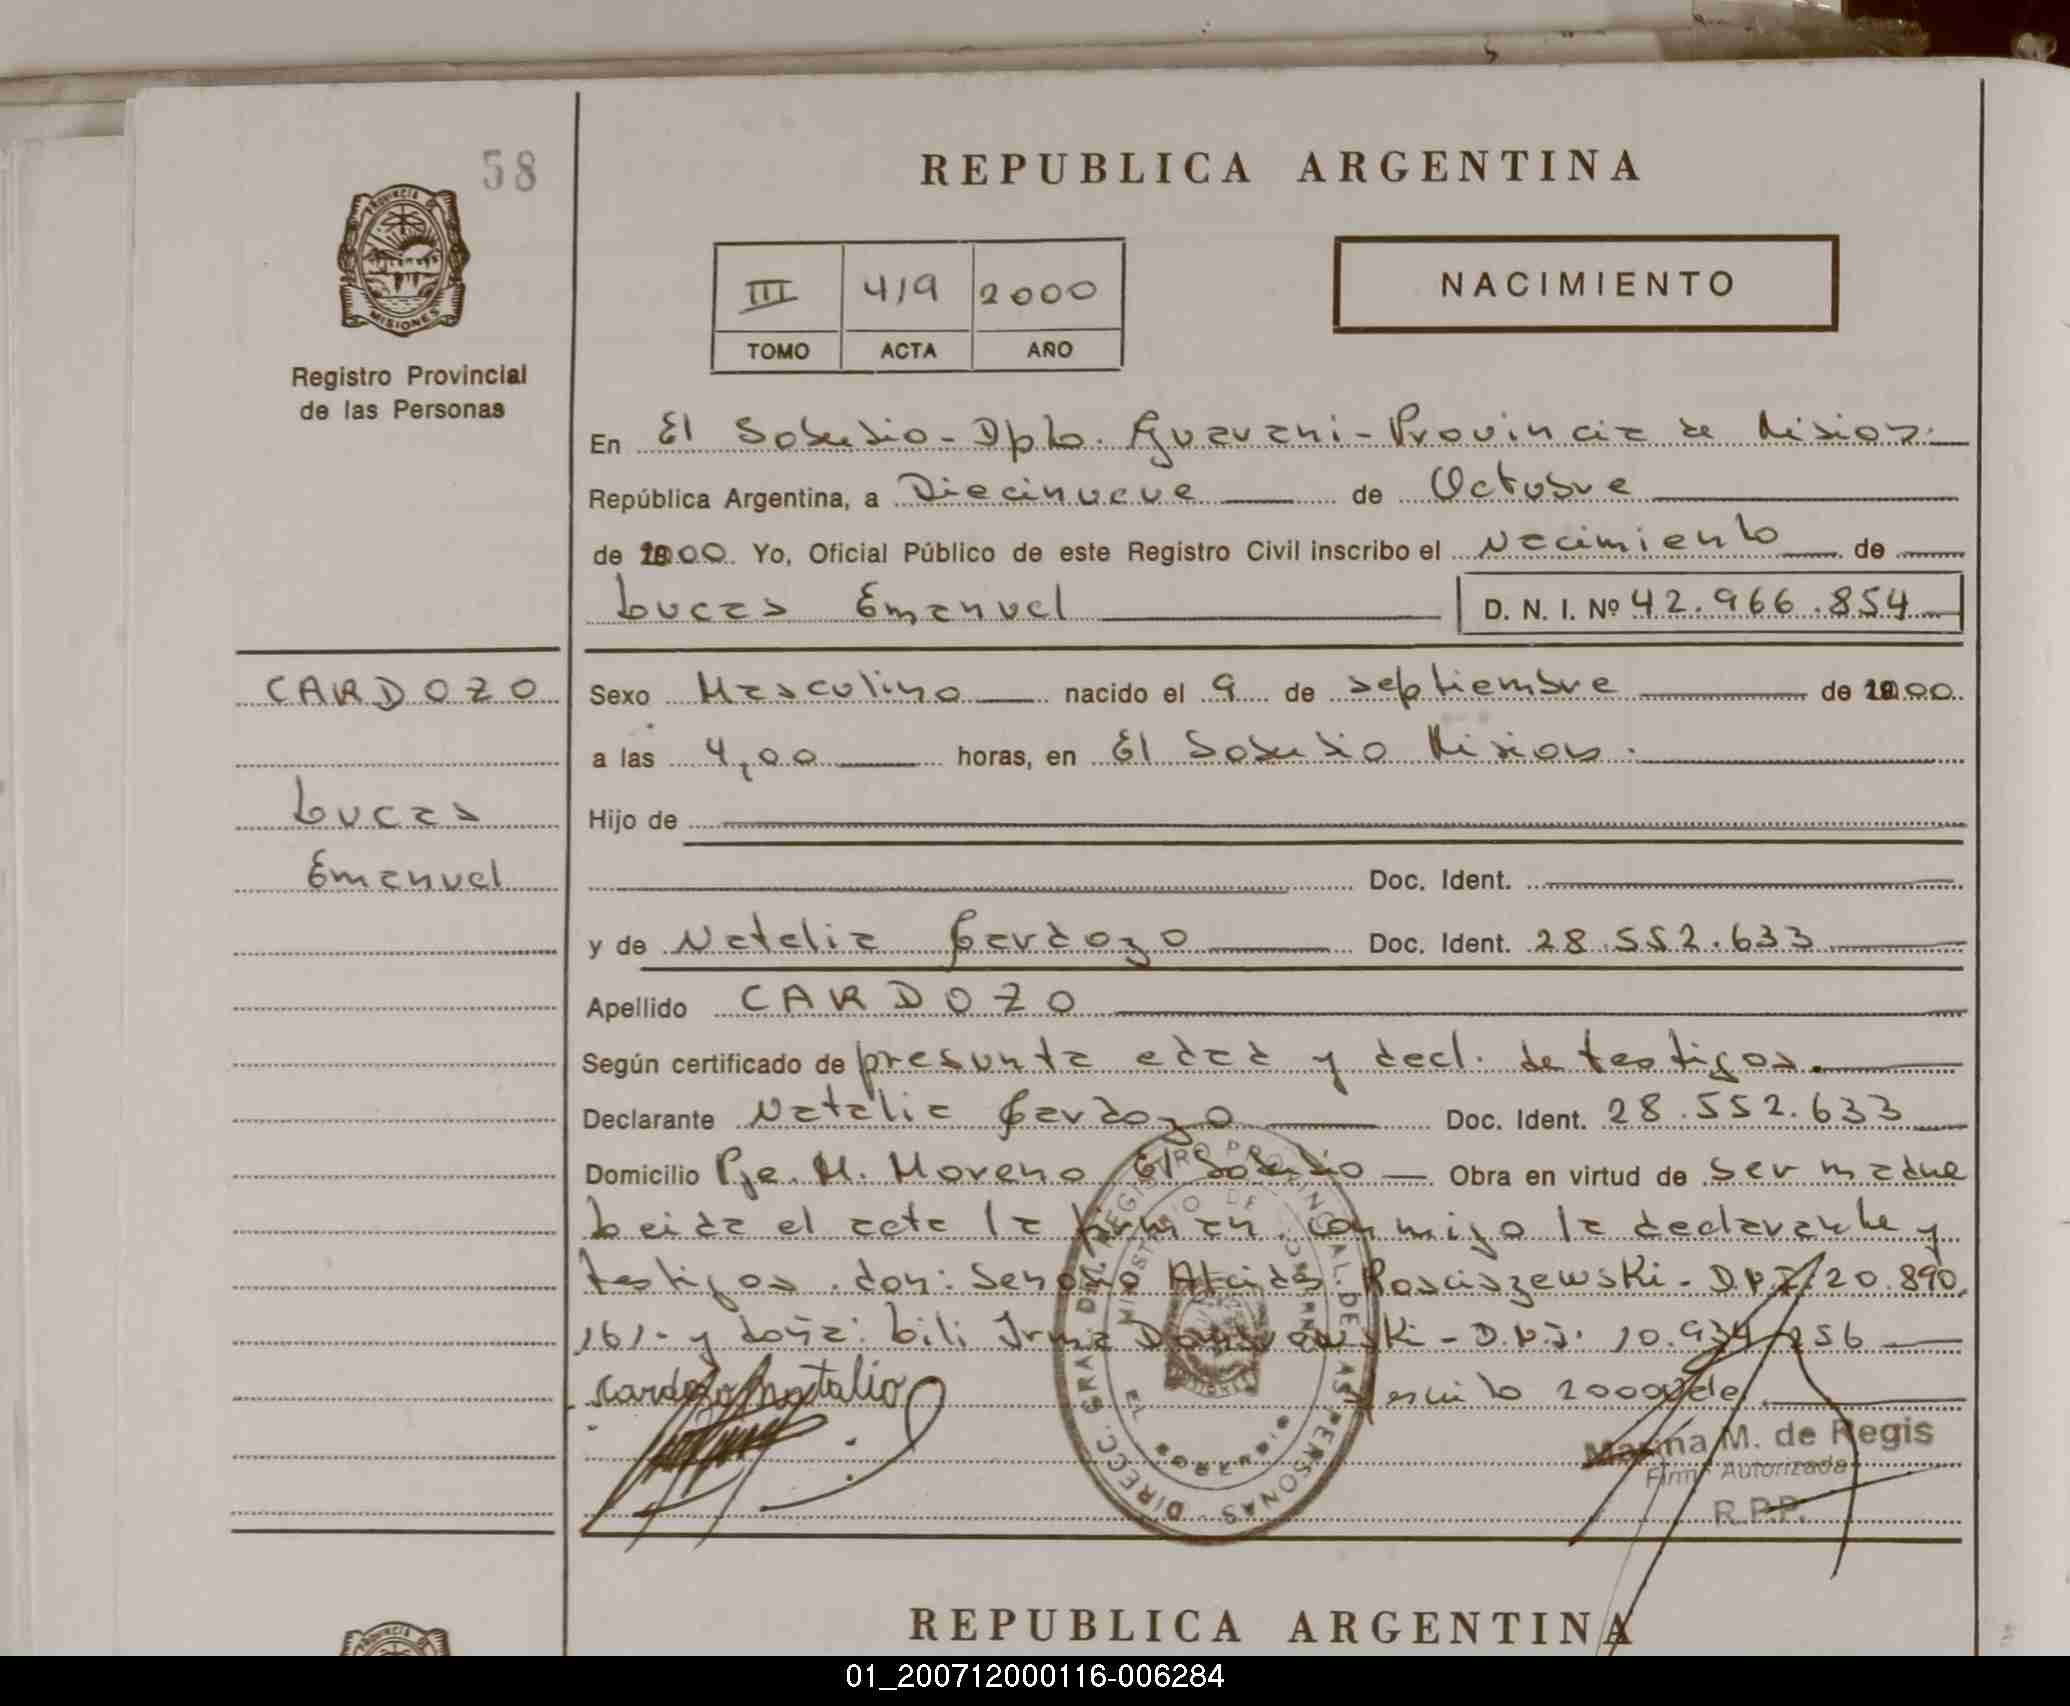 58
REPUBLICA ARGENTINA
PROVINCIA DE
MISIONES
III 419 2000
TOMO ACTA AÑO
NACIMIENTO
Registro Provincial
de las Personas
En El Soberbio - Dpto. Guarani - Provincia de Misiones.
República Argentina, a Diecinueve de Octubre
de 2000 Yo, Oficial Público de este Registro Civil inscribo el Nacimiento de
Lucas Emanuel D. N. I. Nº 42.966.854
CARDOZO
Sexo Masculino nacido el 9 de septiembre de 2000
a las 4,00 horas, en El Soberbio Misiones.
Lucas
Hijo de
Emanuel
Doc. Ident.
y de Natalia Cardozo Doc. Ident. 28.552.633
Apellido CARDOZO
Según certificado de presunta edad y decl. de testigos.
Declarante Natalia Cardozo Doc. Ident. 28.552.633
Domicilio Pje. M. Moreno El Soberbio Obra en virtud de ser madre
Leida el acta la firman conmigo la declarante y
testigos don: Alcides Rosciszewski - D.N.I. 20.890.
161.- y doña: Lili Irma - D.N.I. 10.934.256
Cardozo Natalia 2000 vale.
DIRECC. GRAL. DEL REGISTRO PROVINCIAL DE LAS PERSONAS
MINISTERIO DE GOBIERNO
EL SOBERBIO
Marina M. de Regis
Firma Autorizada
R.P.P.
REPUBLICA ARGENTINA
PROVINCIA DE
01_200712000116-006284